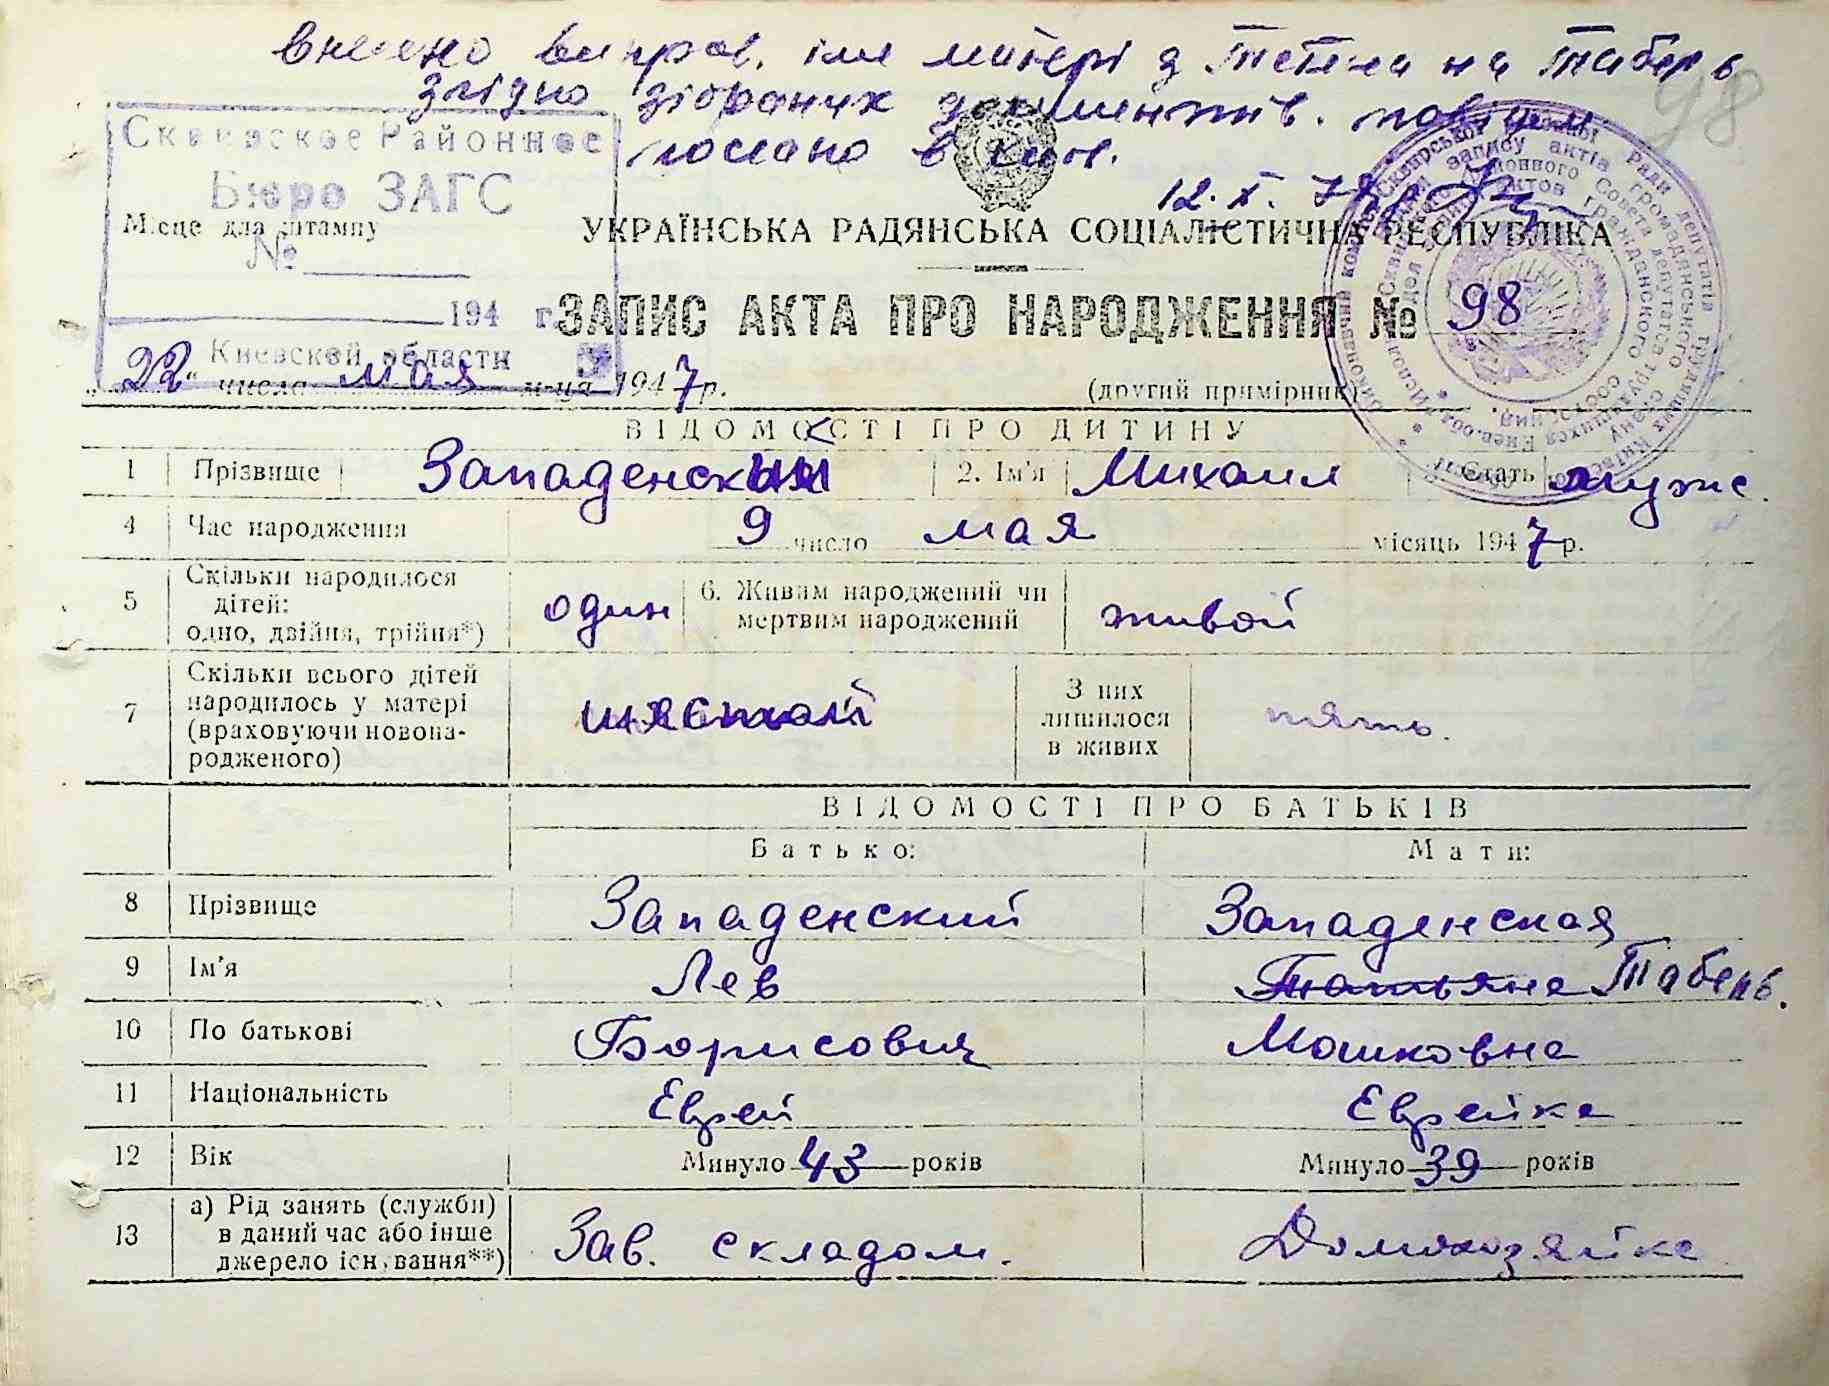 внесено виправ. імя матері з Тетяна на Таберь
98
згідно зібраних документів. повідом.
послано в Київ.
12.X.
Сквирское Районное
Бюро ЗАГС
Місце для штампу
№
194 г.
Киевской области
УКРАЇНСЬКА РАДЯНСЬКА СОЦІАЛІСТИЧНА РЕСПУБЛІКА
ЗАПИС АКТА ПРО НАРОДЖЕННЯ № 98
„22“ числа мая м-ця 1947 р.
(другий примірник)
ВІДОМОСТІ ПРО ДИТИНУ
1 Прізвище Западенский 2. Ім'я Михаил Стать муж.
4 Час народження 9 число мая місяць 1947 р.
5 Скільки народилося дітей: одно, двійня, трійня*) один 6. Живим народжений чи мертвим народжений живой
7 Скільки всього дітей народилось у матері (враховуючи новонародженого) шястой З них лишилося в живих пять.
ВІДОМОСТІ ПРО БАТЬКІВ
Батько: Мати:
8 Прізвище Западенский Западенская
9 Ім'я Лев Татьяна Таберь.
10 По батькові Борисович Мошковна
11 Національність Еврей Еврейка
12 Вік Минуло 43 років Минуло 39 років
13 а) Рід занять (служби) в даний час або інше джерело існування**) Зав. складом. Домохозяйка